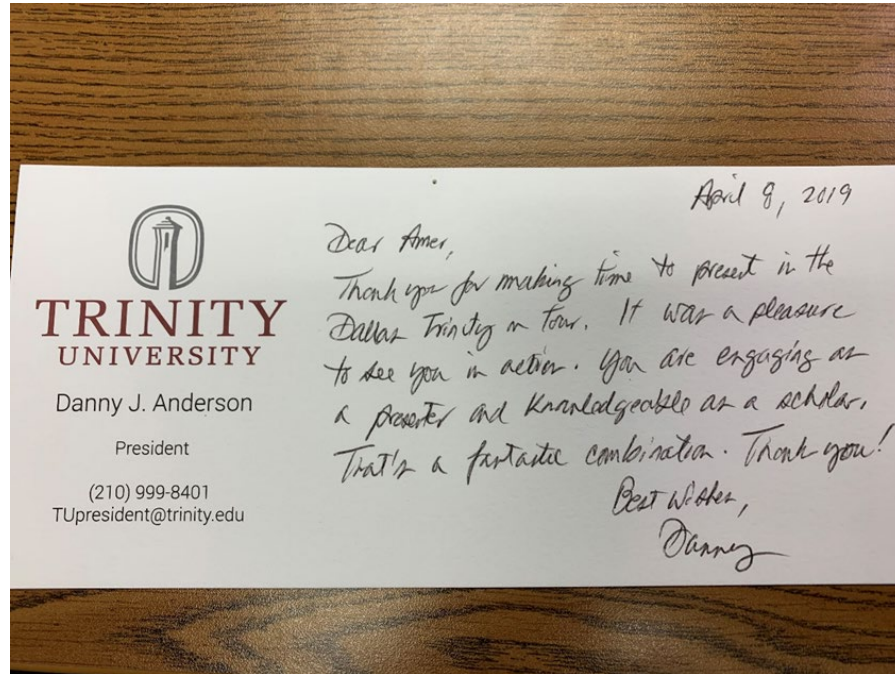 TRINITY
UNIVERSITY
Danny J. Anderson
President
(210) 999-8401
TUpresident@trinity.edu
April 8, 2019
Dear Amer,
Thank you for making time to present in the
Dallas Trinity on Tour. It was a pleasure
to see you in action. You are engaging as
a presenter and knowledgeable as a scholar.
That's a fantastic combination. Thank you!
Best Wishes,
Danny